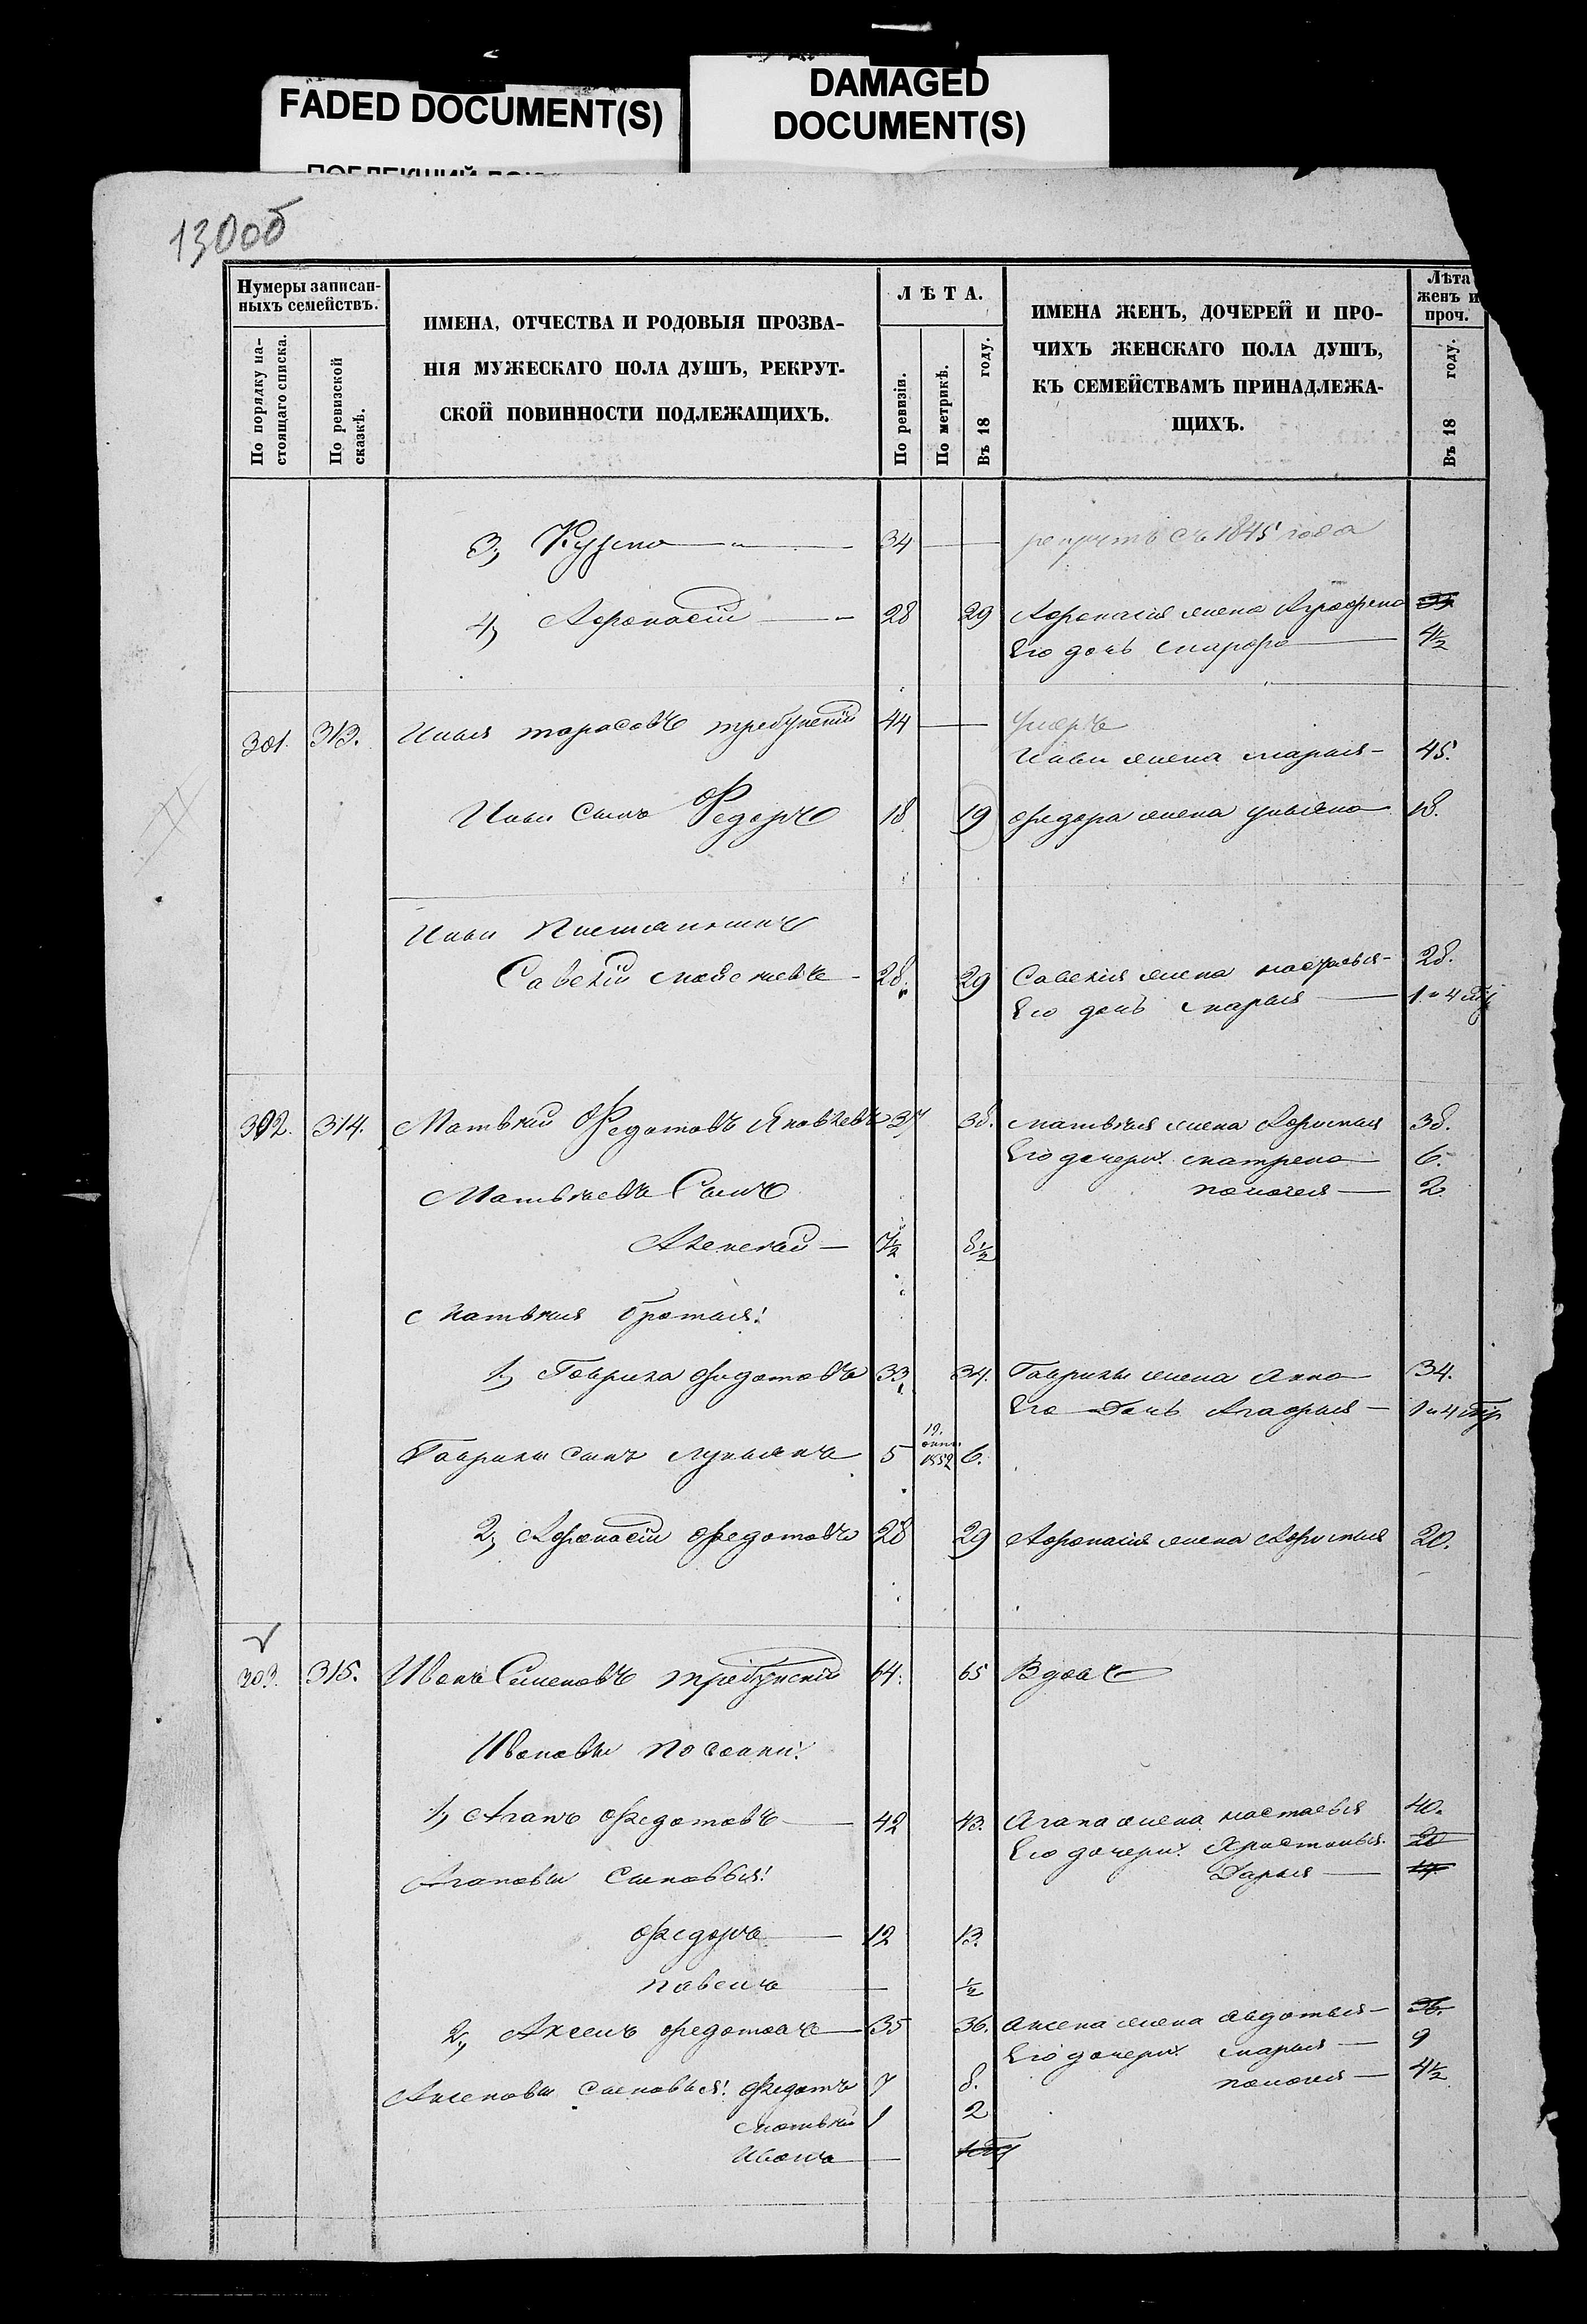 FADED DOCUMENT(S)
DAMAGED
DOCUMENT(S)
130об
Нумеры записан-
ныхъ семействъ.
По порядку на-
стоящаго списка.
По ревизской
сказкѣ.
ИМЕНА, ОТЧЕСТВА И РОДОВЫЯ ПРОЗВА-
НІЯ МУЖЕСКАГО ПОЛА ДУШЪ, РЕКРУТ-
СКОЙ ПОВИННОСТИ ПОДЛЕЖАЩИХЪ.
ЛѢТА.
По ревизіи.
По метрикѣ.
Въ 18 году.
ИМЕНА ЖЕНЪ, ДОЧЕРЕЙ И ПРО-
ЧИХЪ ЖЕНСКАГО ПОЛА ДУШЪ,
КЪ СЕМЕЙСТВАМЪ ПРИНАДЛЕЖА-
ЩИХЪ.
Лѣта
женъ и
проч.
Въ 18 году.
3, Кузма — " — 34 — рекрутъ съ 1845 года
4, Афонасій — " 28 29 Афонасія жена Аграфена
Его дочь Марфа — 4½
301. 313. Илья Тарасовъ Требунскій 44 — умеръ
Ильи жена Марья — 45.
Ильи сынъ Федоръ 18 19 Федора жена Ульяна 18.
Ильи Племянникъ
Савелій Моисеевъ — 28. 29 Савелія жена Настасья — 28.
Его дочь Марья — 1 и 4
302. 314. Матвей Федотовъ Яковлевъ 37 38. Матвея жена Афимья 38.
Его дочери: Матрена — 6.
Матвеевъ Сынъ Пологея — 2
Алексей — 7½ 8½
Матвея братья:
1, Гаврила Федотовъ 33 34. Гаврилы жена Анна 34.
Его Дочь Агафья — 1 и 4
Гаврилы сынъ Лукьянъ 5 19. 1852 6.
2, Афонасій Федотовъ 28 29 Афонасія жена Афимья 20.
303. 315. Иванъ Семеновъ Требунскій 64. 65 Вдовъ
Ивановы пасынки:
1, Агапъ Федотовъ — 42 43. Агапа жена Настасья 40.
Его дочери: Христинья. 20
Агаповы Сыновья: Дарья —
Федоръ — 12 13.
Павелъ — ½
2, Аксенъ Федотовъ — 35 36. Аксена жена Авдотья — 36.
Его дочери: Марья — 9
Аксеновы Сыновья: Федотъ 7 8. Пологея — 4½
Матвей 1 2
Иванъ —